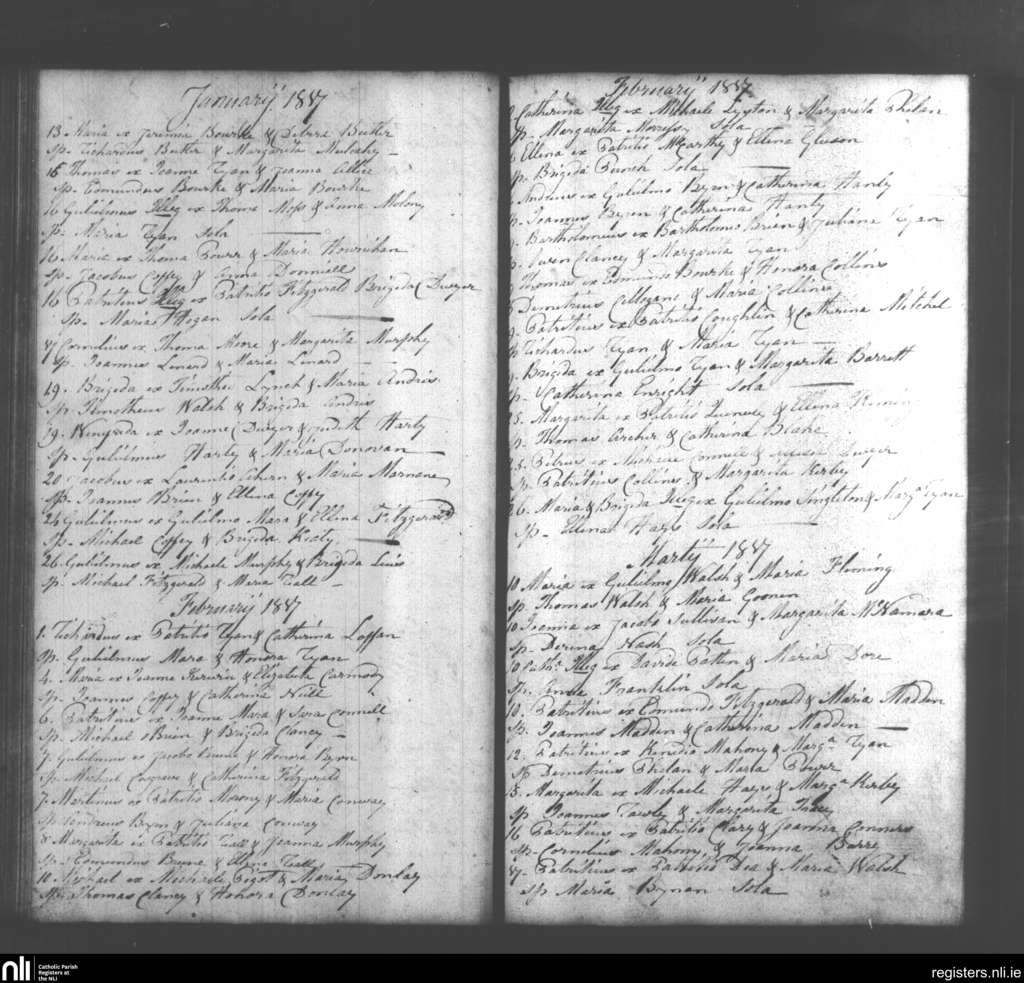 Januarij 1817
13 Maria ex Jeremia Bourke & Debora Butler
Sp. Richardus Butler & Margarita Mulcahy
15 Thomas ex Joanne Ryan & Joanna
Sp. Edmundus Bourke & Maria Bourke
16 Gulielmus Illeg ex Thoma Moss & Anna Molony
Sp. Maria Ryan Sola
16 Maria ex Thoma Power & Maria Hourihan
Sp. Jacobus Coffey & Anna Donnell
16 Patritius Illeg ex Patritio Fitzgerald Brigida Dwyer
Sp. Maria Hogan Sola
Cornelius ex Thoma Mone & Margarita Murphy
Sp. Joannes Lenard & Maria Lenard
19. Brigida ex Timotheo Lynch & Maria Andris
Sp. Timotheus Walsh & Brigida Andris
19. Winefrida ex Joanne Dwyer & Judith Harty
Sp. Gulielmus Harty & Maria Donovan
20 Jacobus ex Laurentio Ahern & Maria Marnane
Sp. Joannes Brien & Ellena Coffey
24 Gulielmus ex Gulielmo Mara & Ellena Fitzgerald
Sp. Michael Coffey & Brigida Kealy
26 Gulielmus ex Michaele Murphy & Brigida Luis
Sp. Michael Fitzgerald & Maria Wall
Februarij 1817
1. Richardus ex Patritio Ryan & Catherina Loffan
Sp. Gulielmus Mara & Honora Ryan
4. Maria ex Joanne & Elizabeth Carmody
Sp. Joannes Coffey & Catherina Neill
6. Patritius ex Joanne Mara & Sara Connell
Sp. Michael OBrien & Brigida Clancy
7. Gulielmus ex Jacobo & Honora Ryan
Sp. Michael Cosgrave & Catherina Fitzgerald
7. Martinus ex Patritio Morony & Maria Conway
Sp. Andreas Ryan & Juliana Conway
8 Margarita ex Patritio Wall & Joanna Murphy
Sp. Edmundus Bryne & Ellena Wall
10. Michael ex Michaele Pigot & Maria Donlay
Sp. Thomas Clancy & Honora Donlay
Februarij 1817
Catherina Illeg ex Michaele Lupton & Margarita Phelan
Sp. Margarita Morrissy Sola
Ellena ex Patritio McCarthy & Ellena Gleeson
Sp. Brigida Sola
Andreas ex Gulielmo Ryan & Catherina Hanly
Sp. Joannes Ryan & Catherina Hanly
Bartholomeus ex Bartholomeo Brien & Juliana Ryan
Sp. Owen Clancy & Margarita Ryan
Thomas ex Edmundo Bourke & Honora Collins
Demetrius Callagan & Maria Collins
Patritius ex Patritio Coughlin & Catherina Mitchel
Sp. Richardus Ryan & Maria Ryan
Brigida ex Gulielmo Ryan & Margarita Barrett
Sp. Catherina Enright Sola
25. Margarita ex Patritio & Ellena
Sp. Thomas Archer & Catherina Blake
25. Petrus ex Michaele Connell & Dwyer
Sp. Patritius Collins & Margarita Kirby
26. Maria & Brigida Illeg ex Gulielmo Singleton & Marga Ryan
Sp. Ellena Hays Sola
Martij 1817
10 Maria ex Gulielmo Walsh & Maria Fleming
Sp. Thomas Walsh & Maria Goonen
10. Joanna ex Jacobo Sullivan & Margarita McNamara
Sp. Nash Sola
10 Cath. Illeg ex Davide Patten & Maria Dore
Sp. Anna Franklin Sola
10. Patritius ex Edmundo Fitzgerald & Maria Madden
Sp. Joannes Madden & Catherina Madden
12. Patritius ex Kenedio Mahony & Marga Ryan
Sp Demetrius Phelan & Maria Power
15. Margarita ex Michaele Hays & Marga Kirby
Sp. Joannes & Margarita Tracy
16 Patritius ex Patritio Clary & Joanna Connors
Sp. Cornelius Mahony & Joanna Barre
17. Patritius ex Patritio Dea & Maria Walsh
Sp Maria Bynan Sola
nli
Catholic Parish
Registers at
the NLI
registers.nli.ie